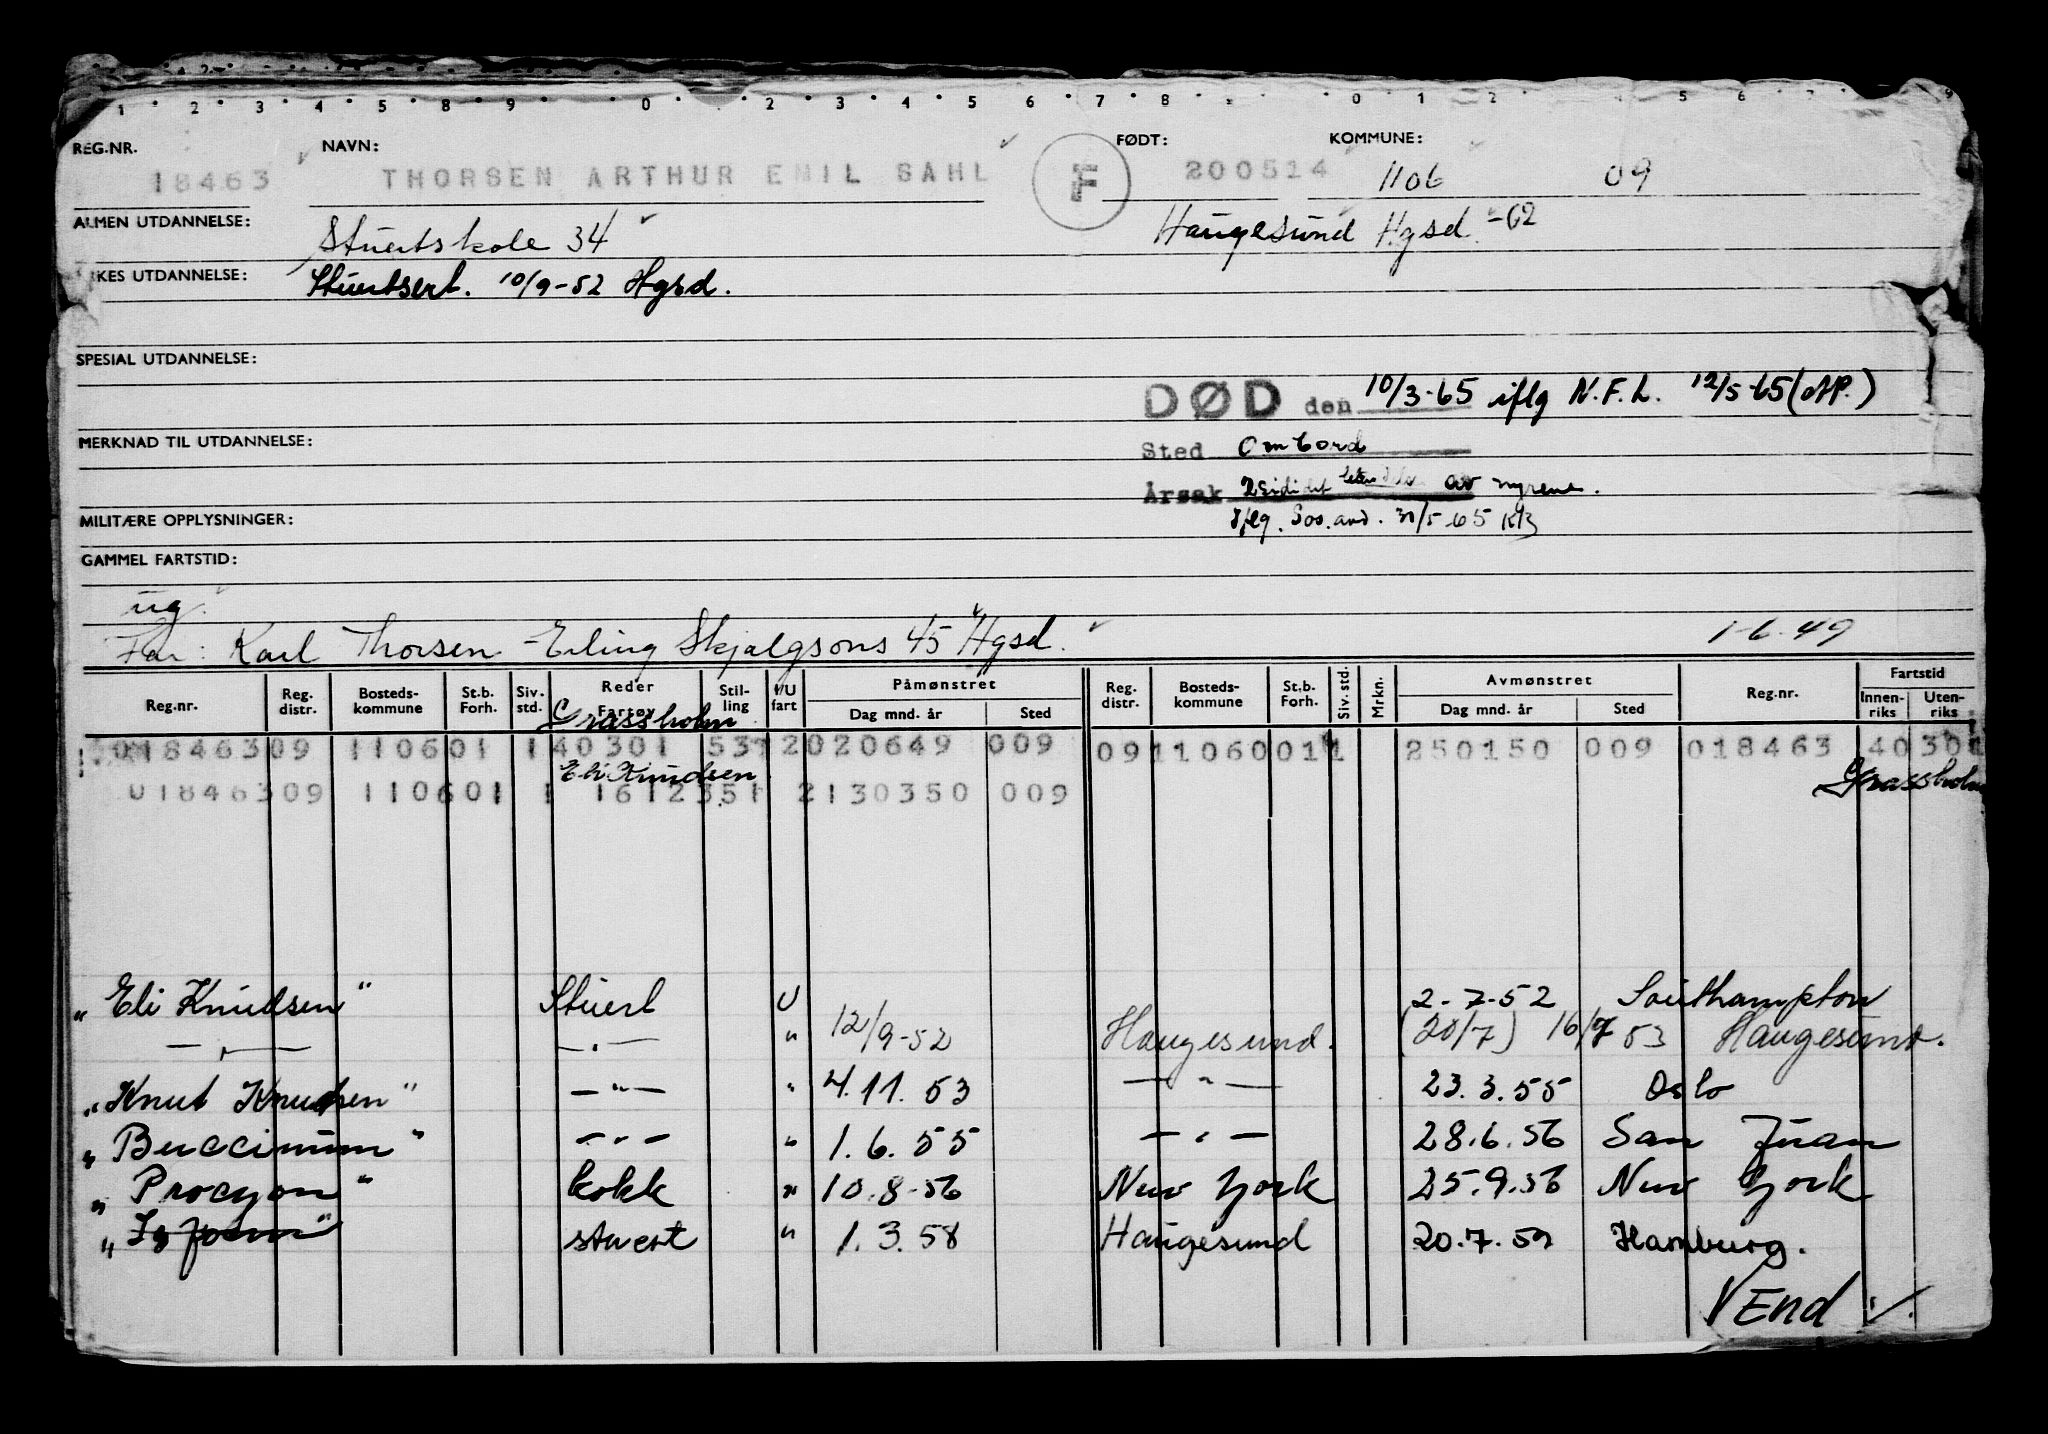 REG.NR. NAVN: FØDT: KOMMUNE:
18463 THORSEN ARTHUR EMIL SAHL F 200514 1106 09
ALMEN UTDANNELSE: Stuertskole 34 Haugesund Hgsd. -62
KES UTDANNELSE: Stuertsert. 10/9-52 Hgsd.
SPESIAL UTDANNELSE:
DØD den 10/3-65 iflg N.F.L. 12/5-65
MERKNAD TIL UTDANNELSE:
Sted Ombord
Årsak av nyrene.
MILITÆRE OPPLYSNINGER:
Iflg. Sos.avd. 31/5-65
GAMMEL FARTSTID:
ug.
Far: Karl Thorsen - Erling Skjalgsons 45 Hgsd. 1-6.49
Reg.nr. Reg. distr. Bosteds- kommune St.b. Forh. Siv. std. Reder Fartøy Stil- ling I/U fart Påmønstret Dag mnd. år Sted Reg. distr. Bosteds- kommune St.b. Forh. Siv. std. Mrkn. Avmønstret Dag mnd. år Sted Reg.nr. Fartstid Innen- riks Uten- riks
Grassholm
018463 09 1106 01 1 40301 53 2 020649 009 09 1106 001 1 250150 009 018463 40301
Eli Knudsen Grassholm
018463 09 1106 01 1 1612351 2 130350 009
" Eli Knudsen " Stuert U 2-7-52 Southampton
— " — — " — " 12/9-52 Haugesund. (20/7) 16/7 53 Haugesund.
" Knut Knudsen " — " — " 4.11.53 — " — 23.3.55 Oslo
" Buccinum " — " — " 1.6.55 — " — 28.6.56 San Juan
" Procyon " kokk " 10.8-56 New York 25.9.56 New York
" " stuert " 1.3.58 Haugesund 20.7.59 Hamburg.
VEnd ./.